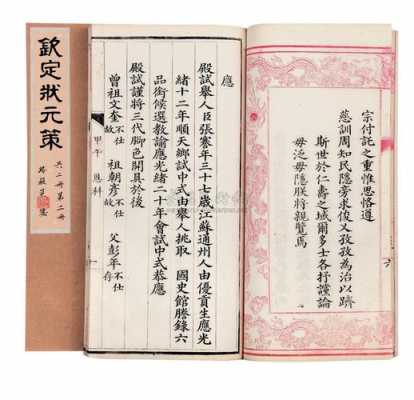 宗付託之重惟思恪遵
慈訓周知民隱旁求俊乂孜孜為治以躋
斯世於仁壽之域爾多士各抒讜論
毋泛毋隱朕將親覽焉
六
應
殿試舉人臣張謇年三十七歲江蘇通州人由優貢生應光
緒十二年順天鄉試中式由舉人挑取 國史館謄錄六
品銜候選教諭應光緒二十年會試中式恭應
殿試謹將三代腳色開具於後
曾祖文奎不仕故 祖朝彥不仕故 父彭年不仕存
甲午 恩科 一
欽定狀元策
共二冊第二冊